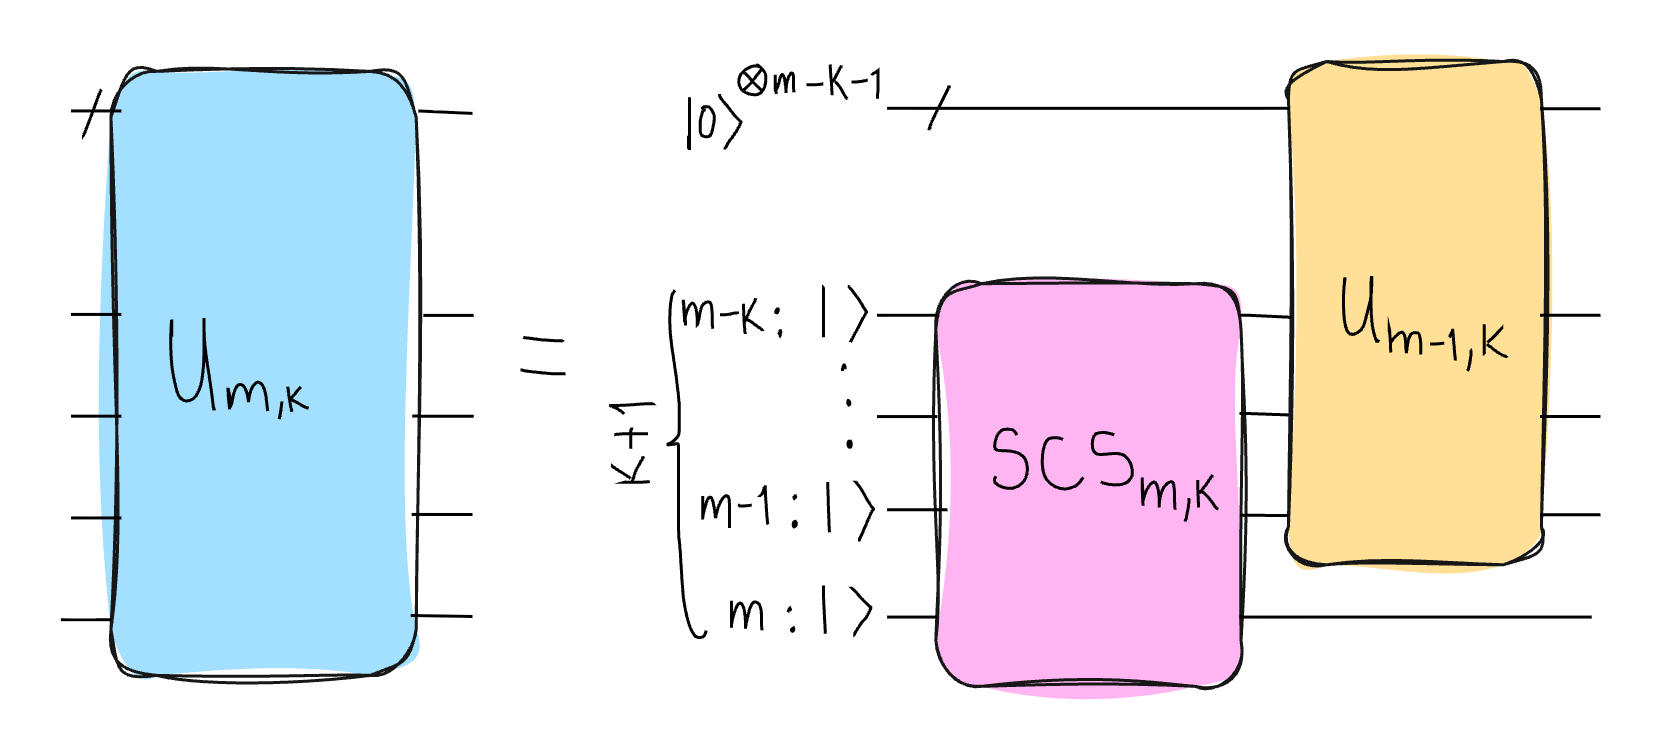 U_{m,k}
=
|0⟩^{⊗m-k-1}
k+1
m-k: | ⟩
⋮
m-1: | ⟩
m: | ⟩
SCS_{m,k}
U_{m-1,k}